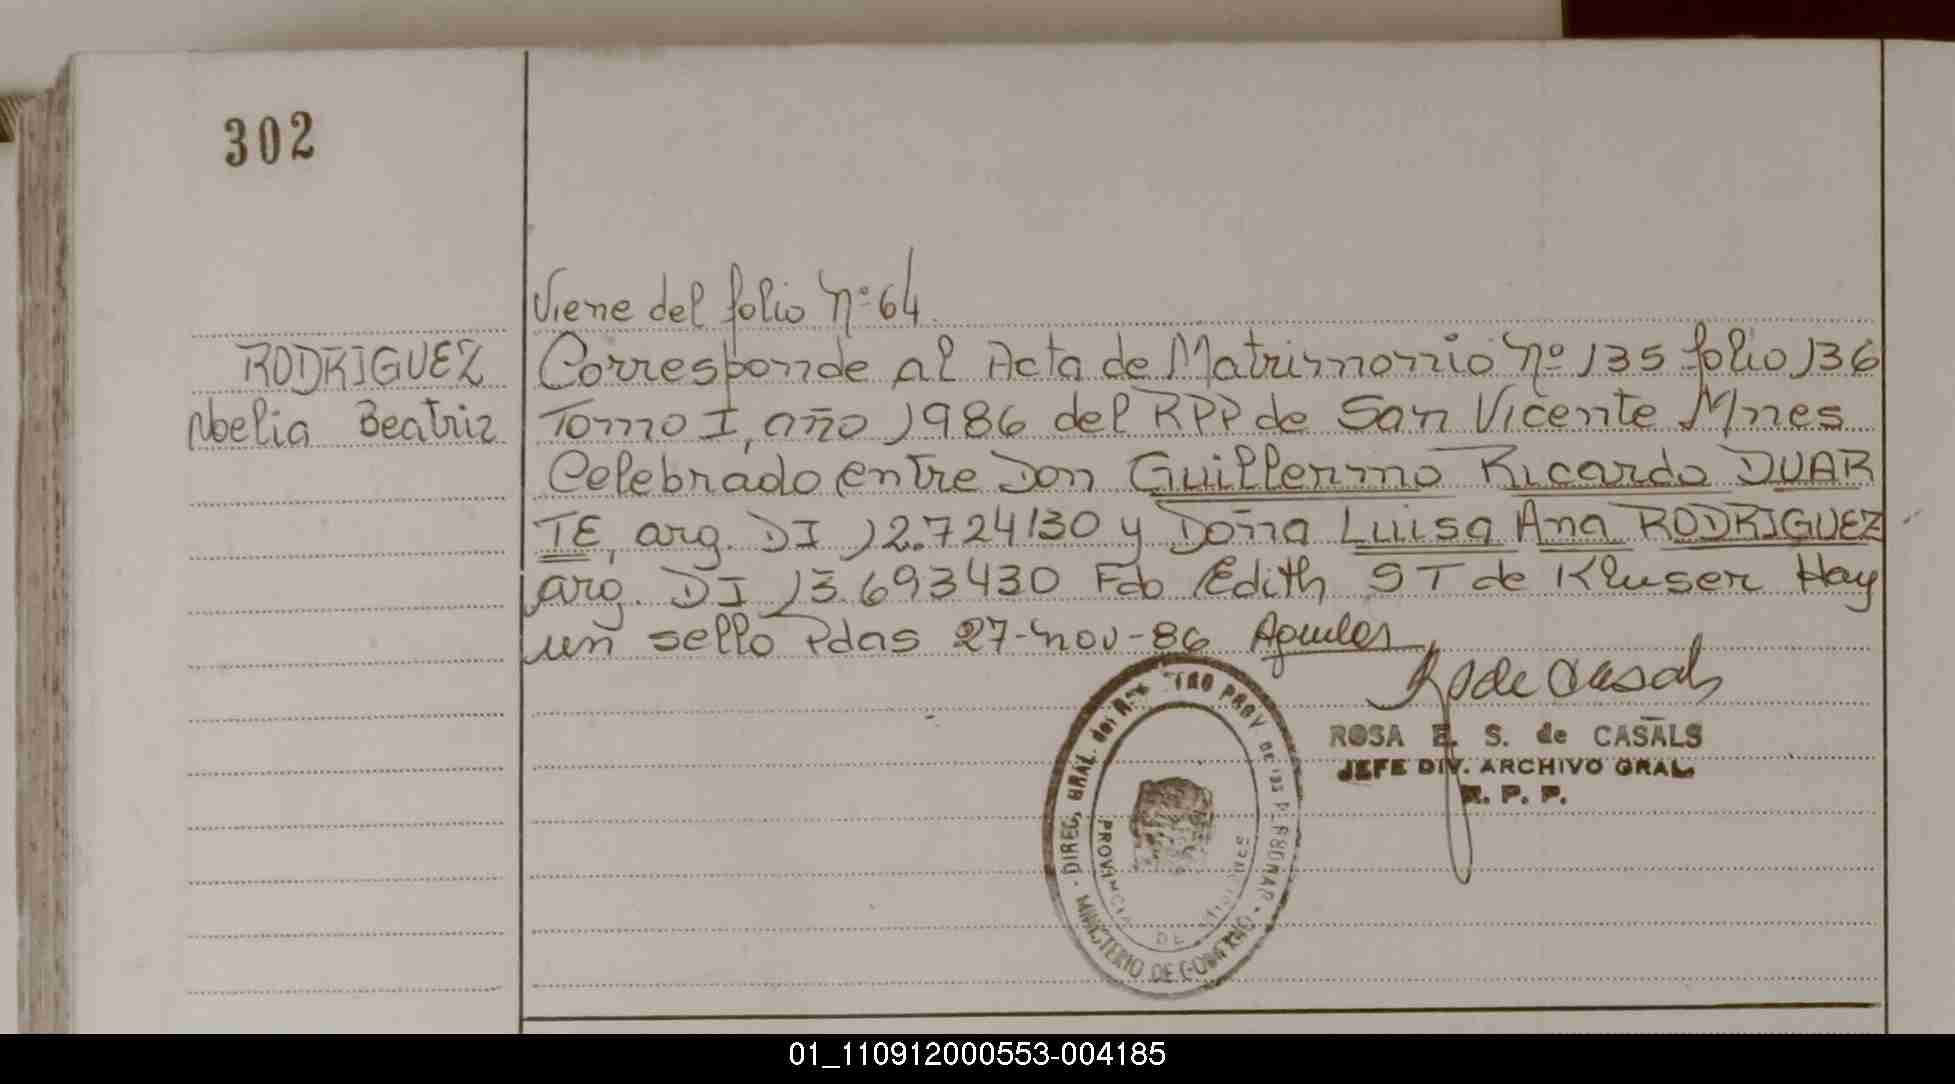 302
Viene del folio nº 64
RODRIGUEZ
Noelia Beatriz
Corresponde al Acta de Matrimonio nº 135 folio 136
Tomo I, año 1986 del RPP de San Vicente Mnes
Celebrado entre Don Guillermo Ricardo DUAR
TE, arg. DI 12.724130 y Doña Luisa Ana RODRIGUEZ
arg. DI 13.693430 Fdo Edith ST de Kluser Hay
un sello Pdas 27-nov-86
R de Casals
ROSA E. S. de CASALS
JEFE DIV. ARCHIVO GRAL.
R. P. P.
DIREC. GRAL. del PROV DE las
MINISTERIO DE GOBIERNO
PROVINCIA DE MISIONES
01_110912000553-004185